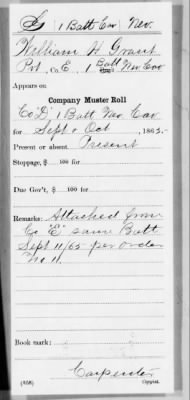 G | 1 Batt Cav | Nev.
William H. Grant
Pvt, Co. E, 1 Batt Nev Cav
Appears on
Company Muster Roll
Co "D" 1 Batt Nev. Cav
for Sept & Oct, 1865.
Present or absent, Present
Stoppage, $ 100 for
Due Gov't, $ 100 for
Remarks: Attached from
Co "E" same Batt
Sept 11/65 per order
No 11.
Book mark:
Carpenter
(858) Copyist.